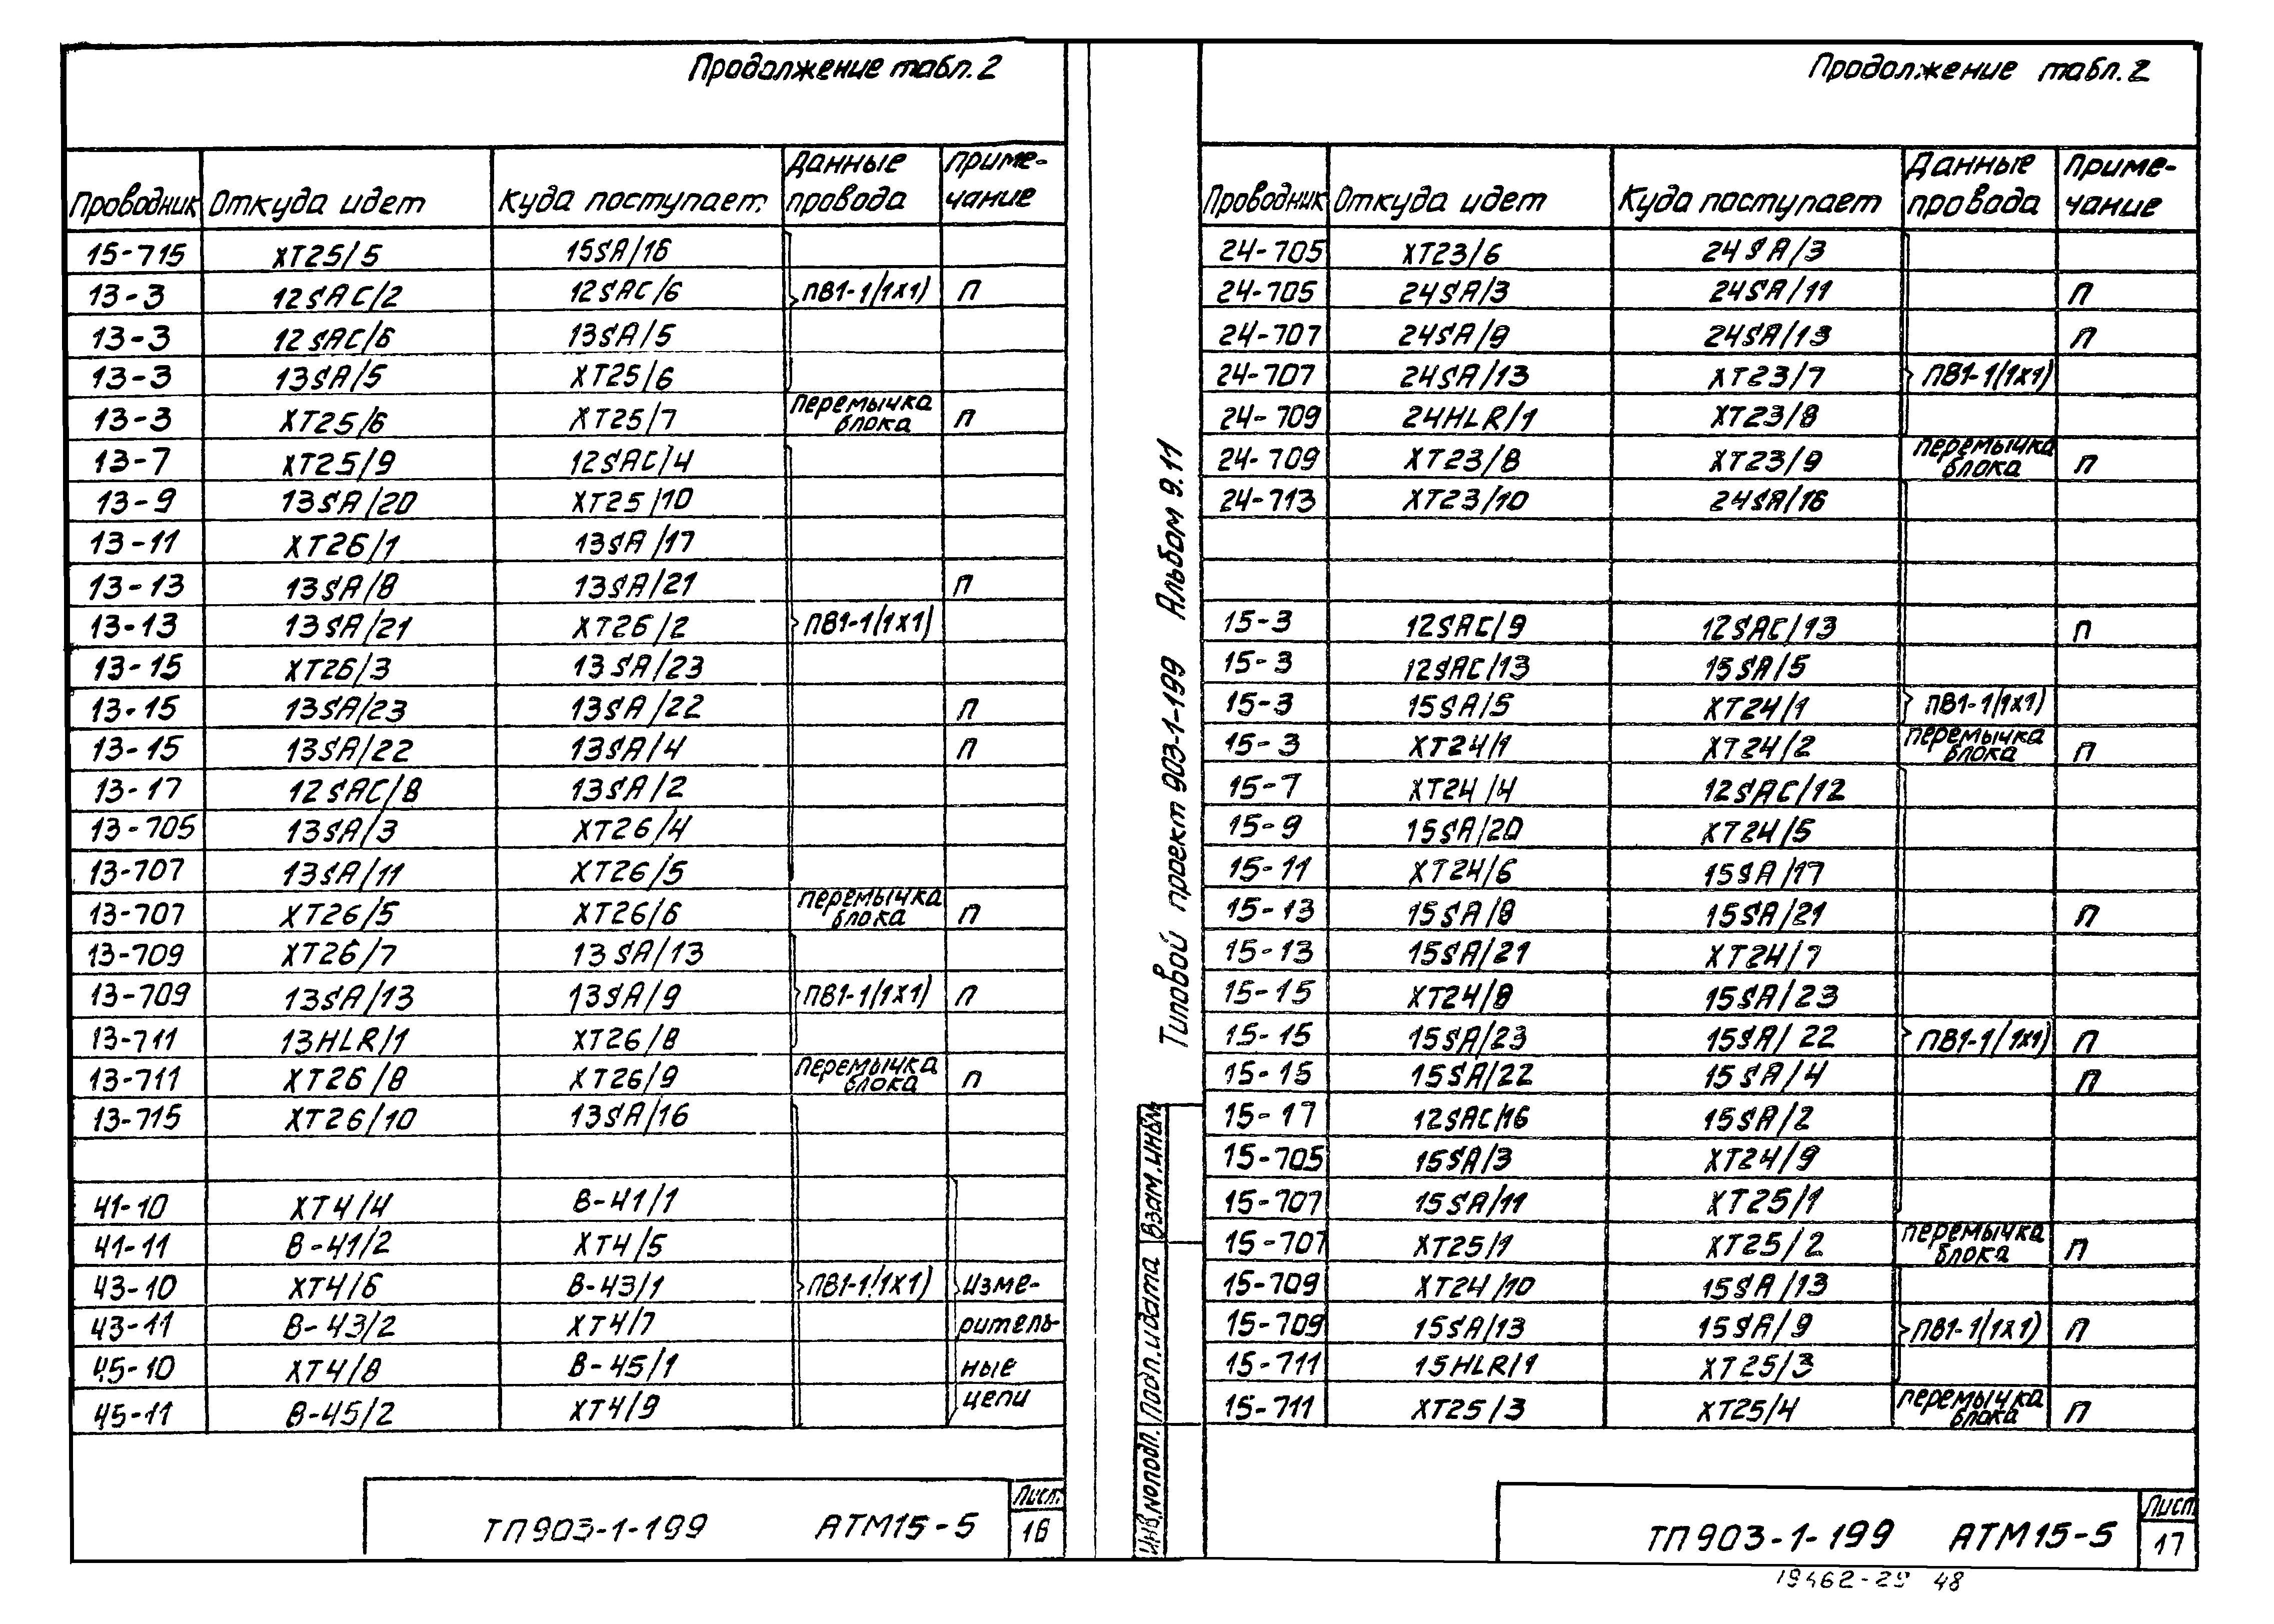 Продолжение табл. 2
Проводник Откуда идет Куда поступает Данные провода Приме-чание
15-715 XT25/5 15SA/16
13-3 12SAC/2 12SAC/6 ПВ1-1(1х1) П
13-3 12SAC/6 13SA/5
13-3 13SA/5 XT25/6
13-3 XT25/6 XT25/7 перемычка блока П
13-7 XT25/9 12SAC/4
13-9 13SA/20 XT25/10
13-11 XT26/1 13SA/17
13-13 13SA/8 13SA/21 П
13-13 13SA/21 XT26/2 ПВ1-1(1х1)
13-15 XT26/3 13SA/23
13-15 13SA/23 13SA/22 П
13-15 13SA/22 13SA/4 П
13-17 12SAC/8 13SA/2
13-705 13SA/3 XT26/4
13-707 13SA/11 XT26/5
13-707 XT26/5 XT26/6 перемычка блока П
13-709 XT26/7 13SA/13
13-709 13SA/13 13SA/9 ПВ1-1(1х1) П
13-711 13HLR/1 XT26/8
13-711 XT26/8 XT26/9 перемычка блока П
13-715 XT26/10 13SA/16
41-10 XT4/4 B-41/1
41-11 B-41/2 XT4/5
43-10 XT4/6 B-43/1 ПВ1-1(1х1) изме-
43-11 B-43/2 XT4/7 ритель-
45-10 XT4/8 B-45/1 ные
45-11 B-45/2 XT4/9 цепи
ТП903-1-199 АТМ15-5
Лист
16
Типовой проект 903-1-199 Альбом 9.11
Взам.инв.№
Подп.и дата
Инв.№подл.
Продолжение табл. 2
Проводник Откуда идет Куда поступает Данные провода Приме-чание
24-705 XT23/6 24SA/3
24-705 24SA/3 24SA/11 П
24-707 24SA/9 24SA/13 П
24-707 24SA/13 XT23/7 ПВ1-1(1х1)
24-709 24HLR/1 XT23/8
24-709 XT23/8 XT23/9 перемычка блока П
24-713 XT23/10 24SA/16
15-3 12SAC/9 12SAC/13 П
15-3 12SAC/13 15SA/5
15-3 15SA/5 XT24/1 ПВ1-1(1х1)
15-3 XT24/1 XT24/2 перемычка блока П
15-7 XT24/4 12SAC/12
15-9 15SA/20 XT24/5
15-11 XT24/6 15SA/17
15-13 15SA/8 15SA/21 П
15-13 15SA/21 XT24/7
15-15 XT24/8 15SA/23
15-15 15SA/23 15SA/22 ПВ1-1(1х1) П
15-15 15SA/22 15SA/4 П
15-17 12SAC/16 15SA/2
15-705 15SA/3 XT24/9
15-707 15SA/11 XT25/1
15-707 XT25/1 XT25/2 перемычка блока П
15-709 XT24/10 15SA/13
15-709 15SA/13 15SA/9 ПВ1-1(1х1) П
15-711 15HLR/1 XT25/3
15-711 XT25/3 XT25/4 перемычка блока П
ТП903-1-199 АТМ15-5
Лист
17
19462-29 48